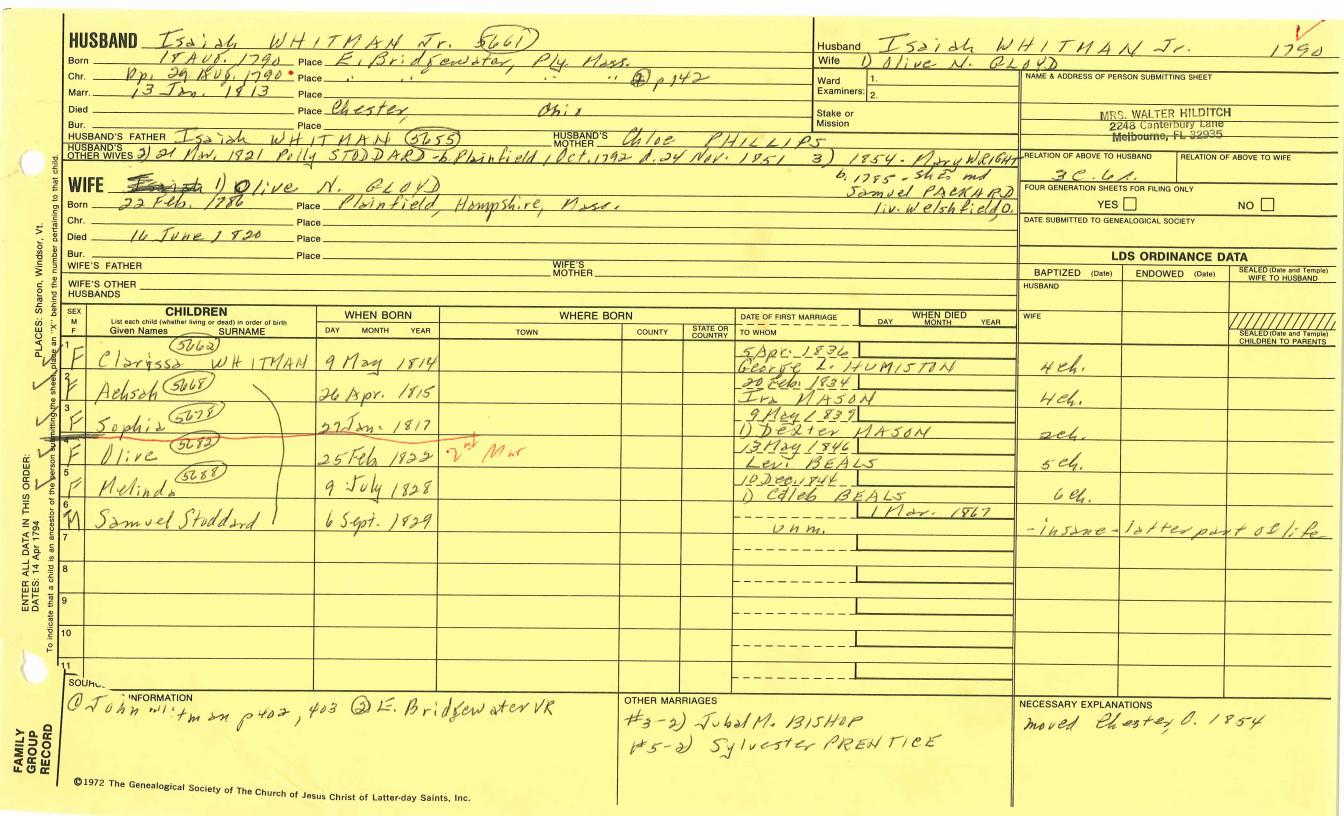 HUSBAND Isaiah WHITMAN Jr. 5661
Born 18 Aug. 1790 Place E. Bridgewater, Ply. Mass.
Chr. Bp. 29 Aug. 1790 Place " " " " ② p142
Marr. 13 Jan. 1813 Place
Died Place Chester, Ohio
Bur. Place
HUSBAND'S FATHER Isaiah WHITMAN 5655 HUSBAND'S MOTHER Chloe PHILLIPS
HUSBAND'S OTHER WIVES 2) 21 Mar. 1821 Polly STODDARD - b. Plainfield, Oct. 1792 d. 24 Nov. 1851 3) 1854 - Mary WRIGHT
b. 1785 - shes md
Samuel PACKARD
liv. Welshfield, O.
WIFE Isaiah 1) Olive N. GLOYD
Born 22 Feb. 1786 Place Plainfield, Hampshire, Mass.
Chr. Place
Died 16 June 1820 Place
Bur. Place
WIFE'S FATHER WIFE'S MOTHER
WIFE'S OTHER HUSBANDS
Husband Isaiah WHITMAN Jr. 1790
Wife 1) Olive N. GLOYD
Ward Examiners: 1. 2.
Stake or Mission
NAME & ADDRESS OF PERSON SUBMITTING SHEET
MRS. WALTER HILDITCH
2248 Canterbury Lane
Melbourne, FL 32935
RELATION OF ABOVE TO HUSBAND RELATION OF ABOVE TO WIFE
3C.6r.
FOUR GENERATION SHEETS FOR FILING ONLY
YES NO
DATE SUBMITTED TO GENEALOGICAL SOCIETY
LDS ORDINANCE DATA
BAPTIZED (Date) ENDOWED (Date) SEALED (Date and Temple) WIFE TO HUSBAND
HUSBAND
WIFE
SEALED (Date and Temple) CHILDREN TO PARENTS
SEX M F CHILDREN WHEN BORN WHERE BORN DATE OF FIRST MARRIAGE WHEN DIED
List each child (whether living or dead) in order of birth
Given Names SURNAME DAY MONTH YEAR TOWN COUNTY STATE OR COUNTRY TO WHOM DAY MONTH YEAR
1 F Clarissa WHITMAN 5662 9 May 1814 5 Apr. 1836 George L. HUMISTON 4 ch.
2 F Achsah 5668 26 Apr. 1815 20 Feb. 1834 Ira MASON 4 ch.
3 F Sophia 5678 27 Jan. 1817 9 May 1839 1) Dexter MASON 2 ch.
F Olive 5682 25 Feb 1822 2nd Mar 13 May 1846 Levi BEALS 5 ch.
5 F Melinda 5688 9 July 1828 10 Dec. 1844 1) Caleb BEALS 6 ch.
6 M Samuel Stoddard 6 Sept. 1829 unm. 1 Mar. 1867 - insane - latter part of life
7
8
9
10
11
INFORMATION
① John Whitman p402, 403 ② E. Bridgewater VR
OTHER MARRIAGES
#3-2) Jubal M. BISHOP
#5-2) Sylvester PRENTICE
NECESSARY EXPLANATIONS
moved Chester, O. 1854
©1972 The Genealogical Society of The Church of Jesus Christ of Latter-day Saints, Inc.
FAMILY GROUP RECORD
ENTER ALL DATA IN THIS ORDER:
DATES: 14 Apr 1794 PLACES: Sharon, Windsor, Vt.
To indicate that a child is an ancestor of the person submitting the sheet, place an "X" behind the number pertaining to that child.